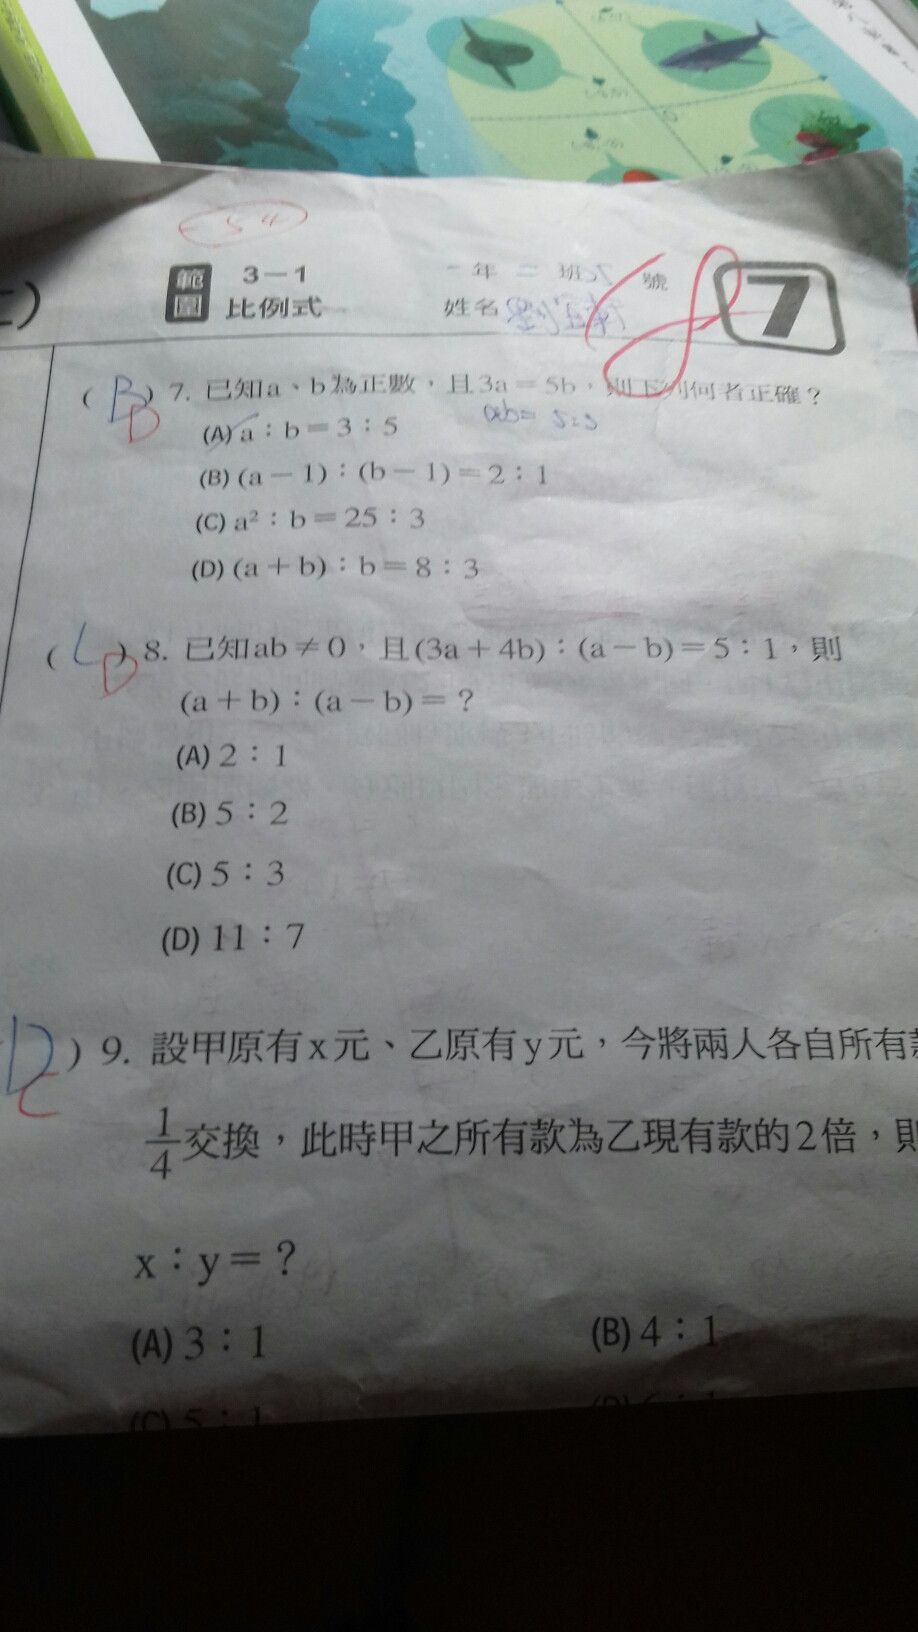 -54
範圍 3－1 比例式
一年二班25號
姓名
7
( B ) 7. 已知a、b為正數，且3a＝5b，則下列何者正確？
D
a:b= 5:3
(A) a：b＝3：5
(B) (a－1)：(b－1)＝2：1
(C) a²：b＝25：3
(D) (a＋b)：b＝8：3
( C ) 8. 已知ab≠0，且(3a＋4b)：(a－b)＝5：1，則
D
(a＋b)：(a－b)＝？
(A) 2：1
(B) 5：2
(C) 5：3
(D) 11：7
D ) 9. 設甲原有x元、乙原有y元，今將兩人各自所有款
C
1/4交換，此時甲之所有款為乙現有款的2倍，則
x：y＝？
(A) 3：1 (B) 4：1
(C) 5：1 (D) 6：1